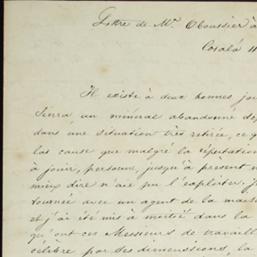 Lettre de Mr. Oboussier à
Cosalá 11
Il existe à deux bonnes jou
Sierra un minéral abandonné dep
dans une situation très retirée, ce q
las cause que malgré la réputation
à jouir, personne, jusqu'à présent n
mieux dire n'aie pu l'exploiter. J
tournée avec un agent de la mais
et j'ai été mis à moitié dans la
qu'ont ces Messieurs de travaill
célèbre par ses dimensions, la